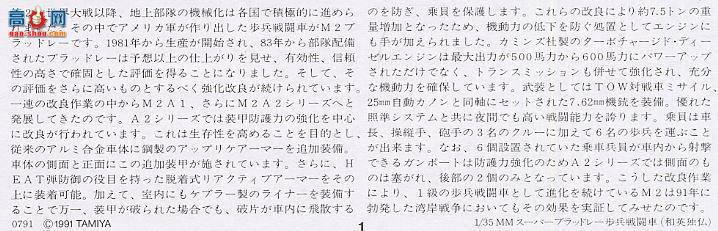 大戦以降、地上部隊の機械化は各国で積極的に進めら
その中でアメリカ軍が作り出した歩兵戦闘車がM2ブ
ラッドレーです。1981年から生産が開始され、83年から部隊配備
されたブラッドレーは予想以上の仕上がりを見せ、有効性、信頼
性の高さで確固とした評価を得ることになりました。そして、そ
の評価をさらに高いものとするべく強化改良が続けられています。
一連の改良作業の中からM2A1、さらにM2A2シリーズへと
発展してきたのです。A2シリーズでは装甲防護力の強化を中心
に改良が行われています。これは生存性を高めることを目的とし、
従来のアルミ合金車体に鋼製のアップリケアーマーを追加装備。
車体の側面と正面にこの追加装甲が施されています。さらに、H
EAT弾防御の役目を持った脱着式リアクティブアーマーをその
上に装着可能。加えて、室内にもケブラー製のライナーを装備す
ることで万一、装甲が破られた場合でも、破片が車内に飛散する
0791 ©1991 TAMIYA
のを防ぎ、乗員を保護します。これらの改良により約7.5トンの重
量増加となったため、機動力の低下を防ぐ処置としてエンジンに
も手が加えられました。カミンズ社製のターボチャージド・ディー
ゼルエンジンは最大出力が500馬力から600馬力にパワーアップ
されただけでなく、トランスミッションも併せて強化され、充分
な機動力を確保しています。武装としてはTOW対戦車ミサイル、
25mm自動カノンと同軸にセットされた7.62mm機銃を装備。優れた
照準システムと共に夜間でも高い戦闘能力を誇ります。乗員は車
長、操縦手、砲手の3名のクルーに加えて6名の歩兵を運ぶこと
が出来ます。なお、6個設置されていた乗車兵員が車内から射撃
できるガンポートは防護力強化のためA2シリーズでは側面のも
のは塞がれ、後部の2個のみとなっています。こうした改良作業
により、1級の歩兵戦闘車として進化を続けているM2は91年に
勃発した湾岸戦争においてもその効果を実証してみせたのです。
1
1/35 MM スーパーブラッドレー歩兵戦闘車 (和英独仏)